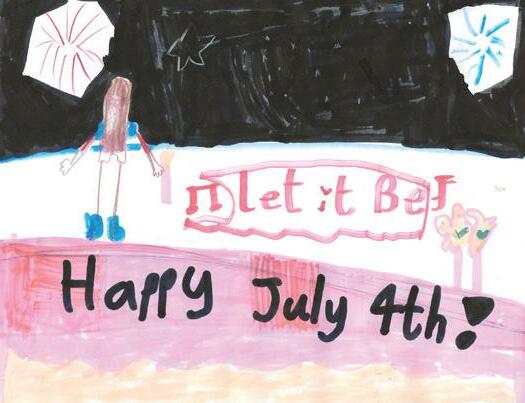 let it Be
Happy July 4th!